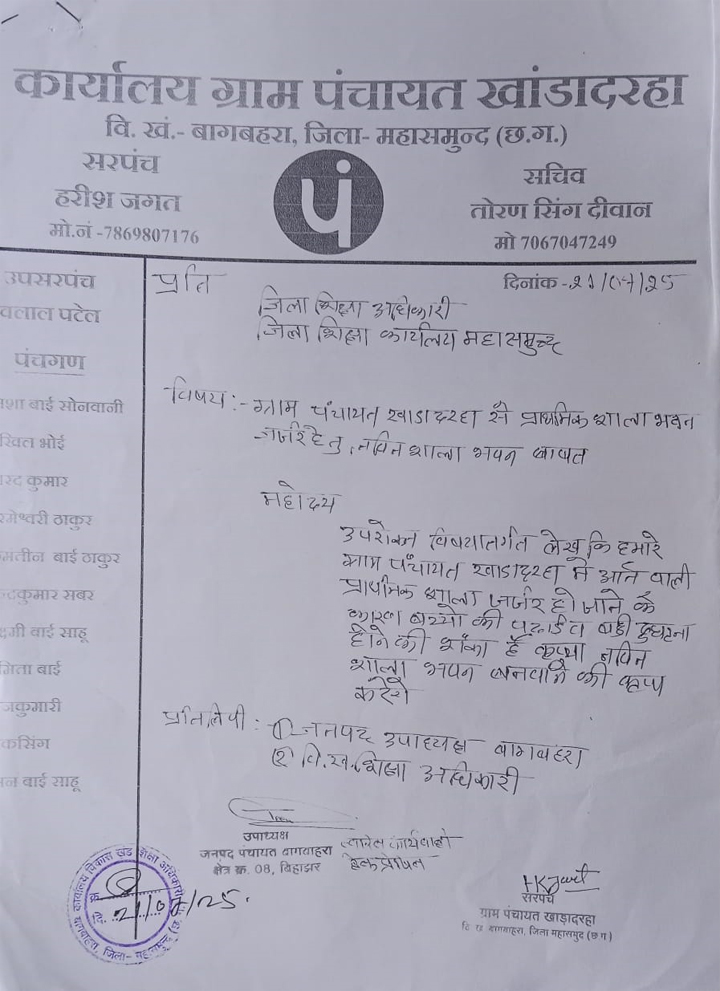 कार्यालय ग्राम पंचायत खांडादरहा
वि. खं.- बागबहरा, जिला- महासमुन्द (छ.ग.)
सरपंच
हरीश जगत
मो.नं -7869807176
पं
सचिव
तोरण सिंग दीवान
मो 7067047249
उपसरपंच
वलाल पटेल
पंचगण
शा बाई सोनवानी
खिल भोई
रद कुमार
मेश्वरी ठाकुर
मतीन बाई ठाकुर
न्द्रकुमार सबर
बाई साहू
मिता बाई
जकुमारी
कसिंग
न बाई साहू
दिनांक -21/07/25
प्रति
जिला शिक्षा अधिकारी
जिला शिक्षा कार्यालय महासमुन्द
विषय:- ग्राम पंचायत खाडादरहा से प्राथमिक शाला भवन
जर्जर हेतु, नविन शाला भवन बाबत
महोदय
उपरोक्त विषयातर्गत लेख कि हमारे
ग्राम पंचायत खाडादरहा मे आने वाली
प्राथमिक शाला जर्जर हो जाने के
कारण बच्चो की बडी दुघटना
होने की शंका है कृप्या नविन
शाला भवन बनवाने की कृप्य
करेगे
प्रतिलिपी : (1) जनपद उपाध्यक्ष बागबहरा
(2) वि.ख. शिक्षा अधिकारी
उपाध्यक्ष
जनपद पंचायत बागबाहरा
क्षेत्र क्र. 08, बिहाझर
कार्यवाही
प्रेषित
HKJagat
सरपंच
ग्राम पंचायत खाड़ादरहा
वि ख बागबाहरा, जिला महासमुद (छ ग)
कार्यालय विकास खंड शिक्षा अधिकारी
क्र.
दि. 21/07/25.
बागबाहरा, जिला- महासमुन्द (छ.